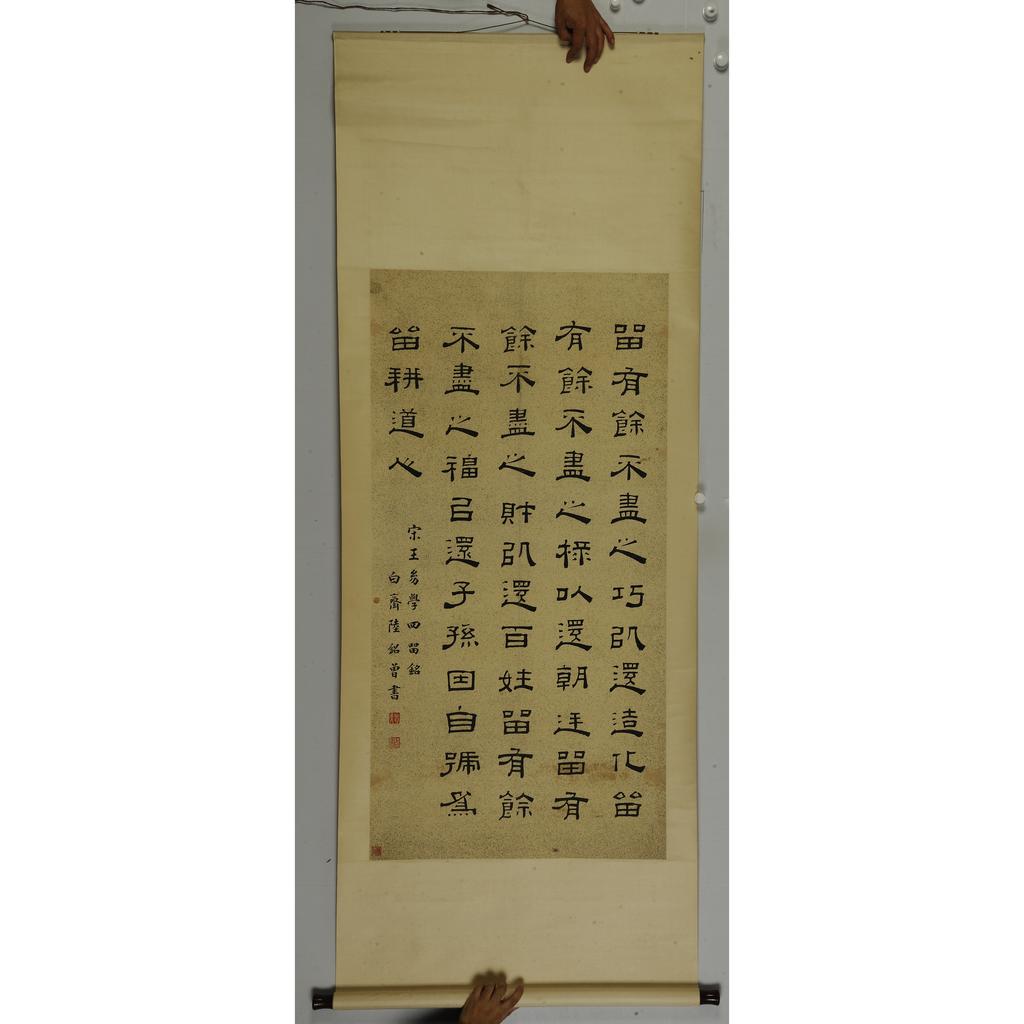 留有餘不盡之巧㠯還造化留
有餘不盡之祿以還朝廷留有
餘不盡之財㠯還百姓留有餘
不盡之福㠯還子孫因自號為
留耕道人
宋王易學四留銘
白齋陸銘曾書